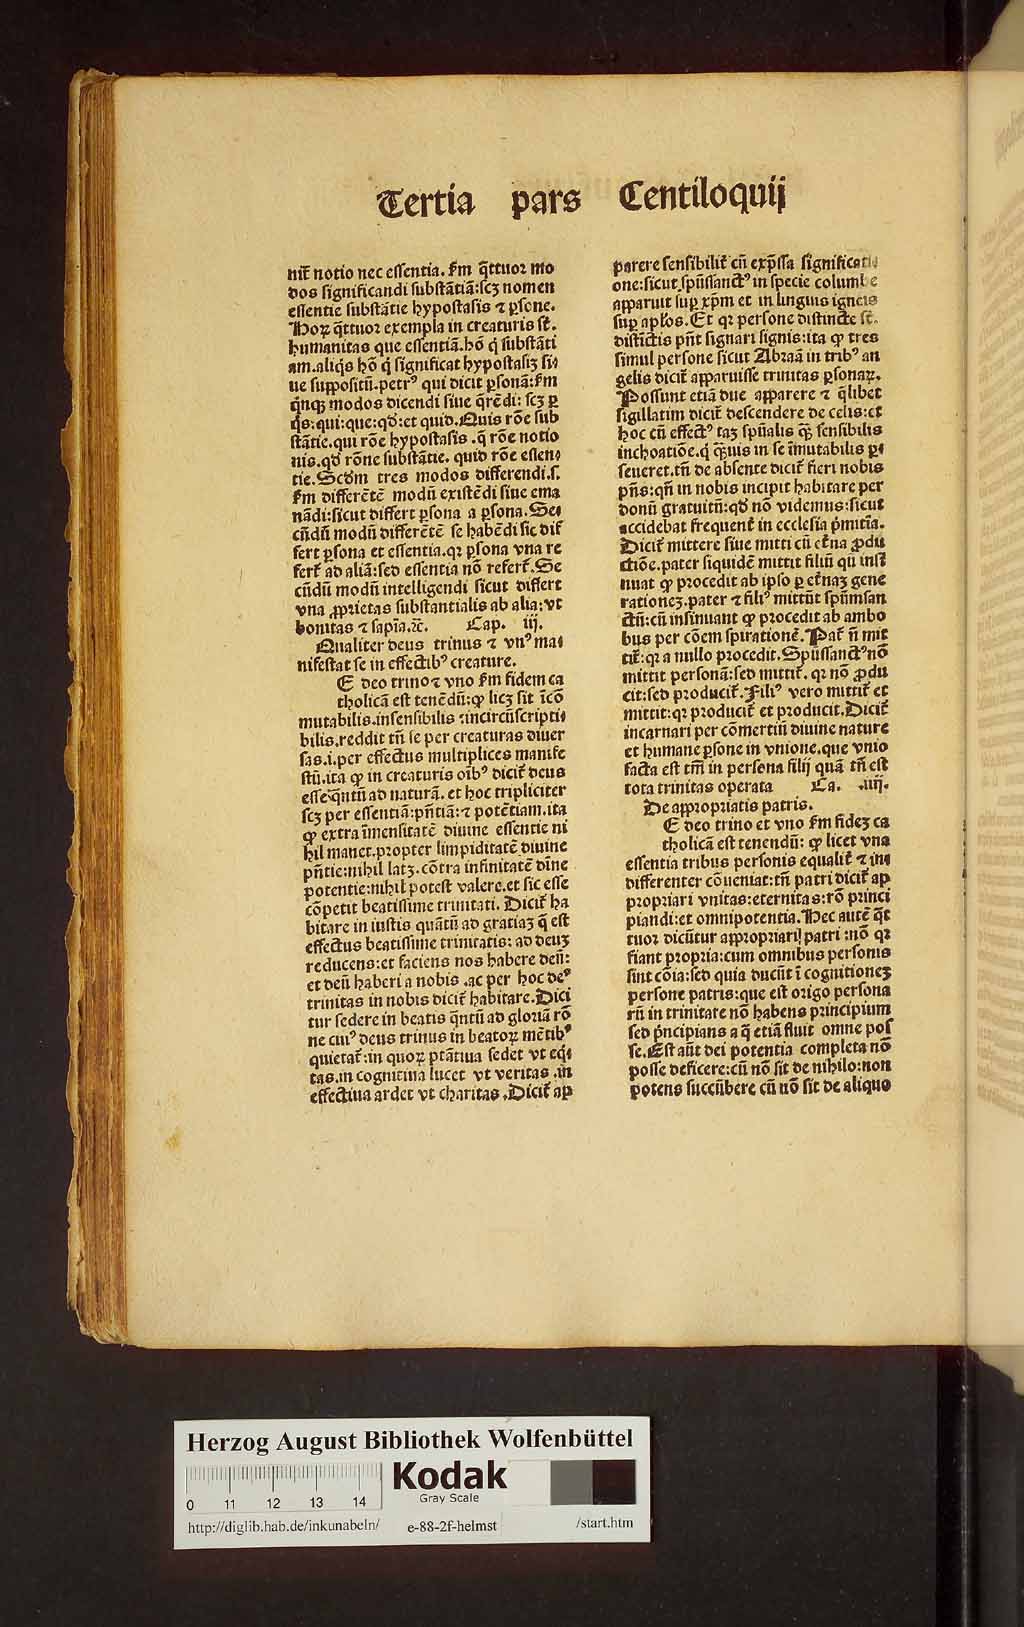 Tertia pars Centiloquij
nit᷑ notio nec essentia. ẜm q̄ttuor mo
dos significandi substātiā:scꝫ nomen
essentie substātie hypostasis ⁊ ꝑsone.
Hoꝝ q̄ttuor exempla in creaturis st̄.
humanitas que essentiā.hō q̇ substāti
am.aliq̇s hō q̇ significat hypostasiꝫ si⸗
ue suppositū.petrꝰ qui dicit ꝑsonā:ẜm
q̄nqꝫ modos dicendi siue q̄rēdi: scꝫ ꝑ
q̇s:qui:que:qď:et quid.Quis rōe sub
stātie.qui rōe hypostasis .q̄ rōe notio
nis.qď rōne substātie. quid rōe essen⸗
tie.Scďm tres modos differendi.s.
ẜm differētē modū existēdi siue ema
nādi:sicut differt ꝑsona a ꝑsona.Se⸗
cūdū modū differētē se habēdi sic dif
fert ꝑsona et essentia.qꝛ ꝑsona vna re
fert᷑ ad aliā:sed essentia nō refert᷑.Se
cūdū modū intelligendi sicut differt
vna ꝓprietas substantialis ab alia:vt
bonitas ⁊ sapīa.⁊c̄. Cap. iij.
Qualiter deus trinus ⁊ vnꝰ ma⸗
nifestat se in effectibꝰ creature.
E deo trino ⁊ vno ẜm fidem ca
tholicā est tenēdū:ꝙ licꝫ sit īcō
mutabilis.insensibilis ⁊incircūscripti⸗
bilis.reddit tn̄ se per creaturas diuer
sas.i.per effectus multiplices manife
stū.ita ꝙ in creaturis oībꝰ dicit᷑ deus
esse q̄ntū ad naturā. et hoc tripliciter
scꝫ per essentiā:pn̄tiā:⁊ potētiam.ita
ꝙ extra īmensitatē diuine essentie ni
hil manet.propter limpiditatē diuine
pn̄tie:nihil latꝫ.cōtra infinitatē dīne
potentie:nihil potest valere.et sic esse
cōpetit beatissime trinitati. Dicit᷑ ha
bitare in iustis quātū ad gratiaꝫ q̄ est
effectus beatissime trinitatis: ad deuꝫ
reducens:et faciens nos habere deū:
et deū haberi a nobis .ac per hoc deꝰ
trinitas in nobis dicit᷑ habitare.Dici
tur sedere in beatis q̄ntū ad gloriā rō
ne cuiꝰ deus trinus in beatoꝝ mētibꝰ
quietat᷑:in quoꝝ ptātiua sedet vt eq̇⸗
tas.in cognitiua lucet vt veritas .in
effectiua ardet vt charitas .Dicit᷑ ap
parere sensibilit᷑ cū exp̄ssa significati
one:sicut spūssanctꝰ in specie columbe
apparuit suꝑ xp̄m et in linguis igneis
suꝑ apl̄os.Et qꝛ persone distincte st̄.
distīctis pn̄t signari signis:ita ꝙ tres
simul persone sicut Abraā in tribꝰ an
gelis dicit᷑ apparuisse trinitas ꝑsonaꝝ.
Possunt etiā due apparere ⁊ q̄libet
sigillatim dicit᷑ descendere de celis:et
hoc cū effectꝰ taꝫ spūalis qꝫ̄ sensibilis
inchoatiōe.q̇ qꝫ̄uis in se īmutabilis ꝑ⸗
seueret.tn̄ de absente dicit᷑ fieri nobis
pn̄s:qn̄ in nobis incipit habitare per
donū gratuitū:qď nō videmus:sicut
accidebat frequent᷑ in ecclesia p̄mitīa.
Dicit᷑ mittere siue mitti cū et᷑na ꝓdu
ctiōe.pater siquidē mittit filiū qū insi
nuat ꝙ procedit ab ipso ꝑ et᷑naꝫ gene
rationeꝫ.pater ⁊ filiꝰ mittūt spūmsan
ctū:cū insinuant ꝙ procedit ab ambo
bus per cōem spirationē.Pat᷑ n̄ mit
tit᷑:qꝛ a nullo procedit.Spūssanctꝰ nō
mittit personā:sed mittit᷑. qꝛ nō ꝓdu
cit:sed producit᷑.Filiꝰ vero mittit᷑ et
mittit:qꝛ producit᷑ et producit.Dicit᷑
incarnari per cōmertiū diuine nature
et humane ꝑsone in vnione.que vnio
facta est tm̄ in persona filij quā tn̄ est
tota trinitas operata Ca. .iiij.
De appropriatis patris.
E deo trino et vno ẜm fideꝫ ca
tholicā est tenendū: ꝙ licet vna
essentia tribus personis equalit᷑ ⁊ in⸗
differenter cōueniat:tn̄ patri dicit᷑ ap
propriari vnitas:eternitas:rō princi
piandi:et omnipotentia.Hec autē q̄t
tuor dicūtur appropriari patri :nō qꝛ
fiant propria:cum omnibus personis
sint cōia:sed quia ducūt ī cognitioneꝫ
persone patris:que est origo persona
rū in trinitate nō habens principium
sed p̄ncipians a q̄ etiā fluit omne pos
se.Est aūt dei potentia completa nō
posse deficere:cū nō sit de nihilo:non
potens succūbere cū nō sit de aliquo
Herzog August Bibliothek Wolfenbüttel
0 11 12 13 14
Kodak
Gray Scale
http://diglib.hab.de/inkunabeln/ e-88-2f-helmst /start.htm